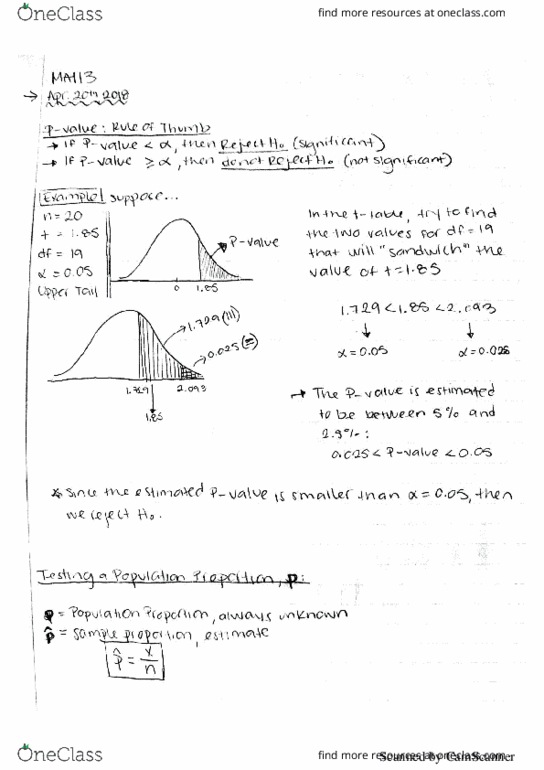 OneClass
find more resources at oneclass.com
MA113
→ Apr. 20th 2018
P-value: Rule of Thumb
→ If P-value < α, then Reject H₀ (significant)
→ If P-value ≥ α, then do not Reject H₀ (not significant)
Example suppose...
n = 20
t = 1.85
df = 19
α = 0.05
Upper Tail
P-value
0 1.85
In the t-table, try to find
the two values for df = 19
that will "sandwich" the
value of t = 1.85
1.729 < 1.85 < 2.093
α = 0.05 α = 0.025
1.729 (|||)
0.025 (=)
1.729 2.093
1.85
→ The P-value is estimated
to be between 5% and
2.5%:
0.025 < P-value < 0.05
* Since the estimated P-value is smaller than α = 0.05, then
we reject H₀.
Testing a Population Proportion, p:
p = Population Proportion, always unknown
p̂ = sample proportion, estimate
p̂ = x/n
OneClass
find more resources at oneclass.com
Scanned by CamScanner